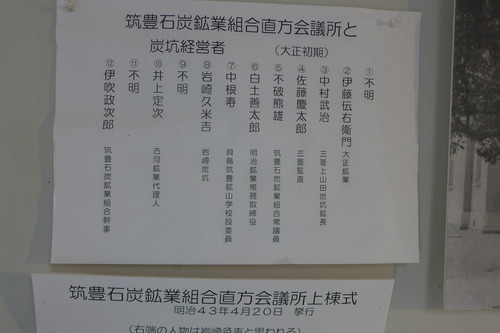 筑豊石炭鉱業組合直方会議所と
炭坑経営者　（大正初期）
①不明
②伊藤伝右衛門　大正鉱業
③中村武治　三菱上山田炭坑鉱長
④佐藤慶太郎　三菱監査
⑤不破熊雄　筑豊石炭鉱業組合常議員
⑥白土善太郎　明治鉱業常務取締役
⑦中根寿　貝島筑豊鉱山学校設委員
⑧岩崎久米吉　岩崎炭坑
⑨不明
⑩井上定次　古河鉱業代理人
⑪不明
⑫伊吹政次郎　筑豊石炭鉱業組合幹事
筑豊石炭鉱業組合直方会議所上棟式
明治43年4月20日　挙行
（右端の人物は岩崎
と思われる）